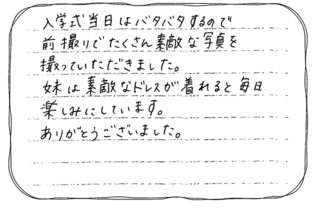 入学式当日はバタバタするので
前撮りでたくさん素敵な写真を
撮っていただきました。
妹は素敵なドレスが着れると毎日
楽しみにしています。
ありがとうございました。